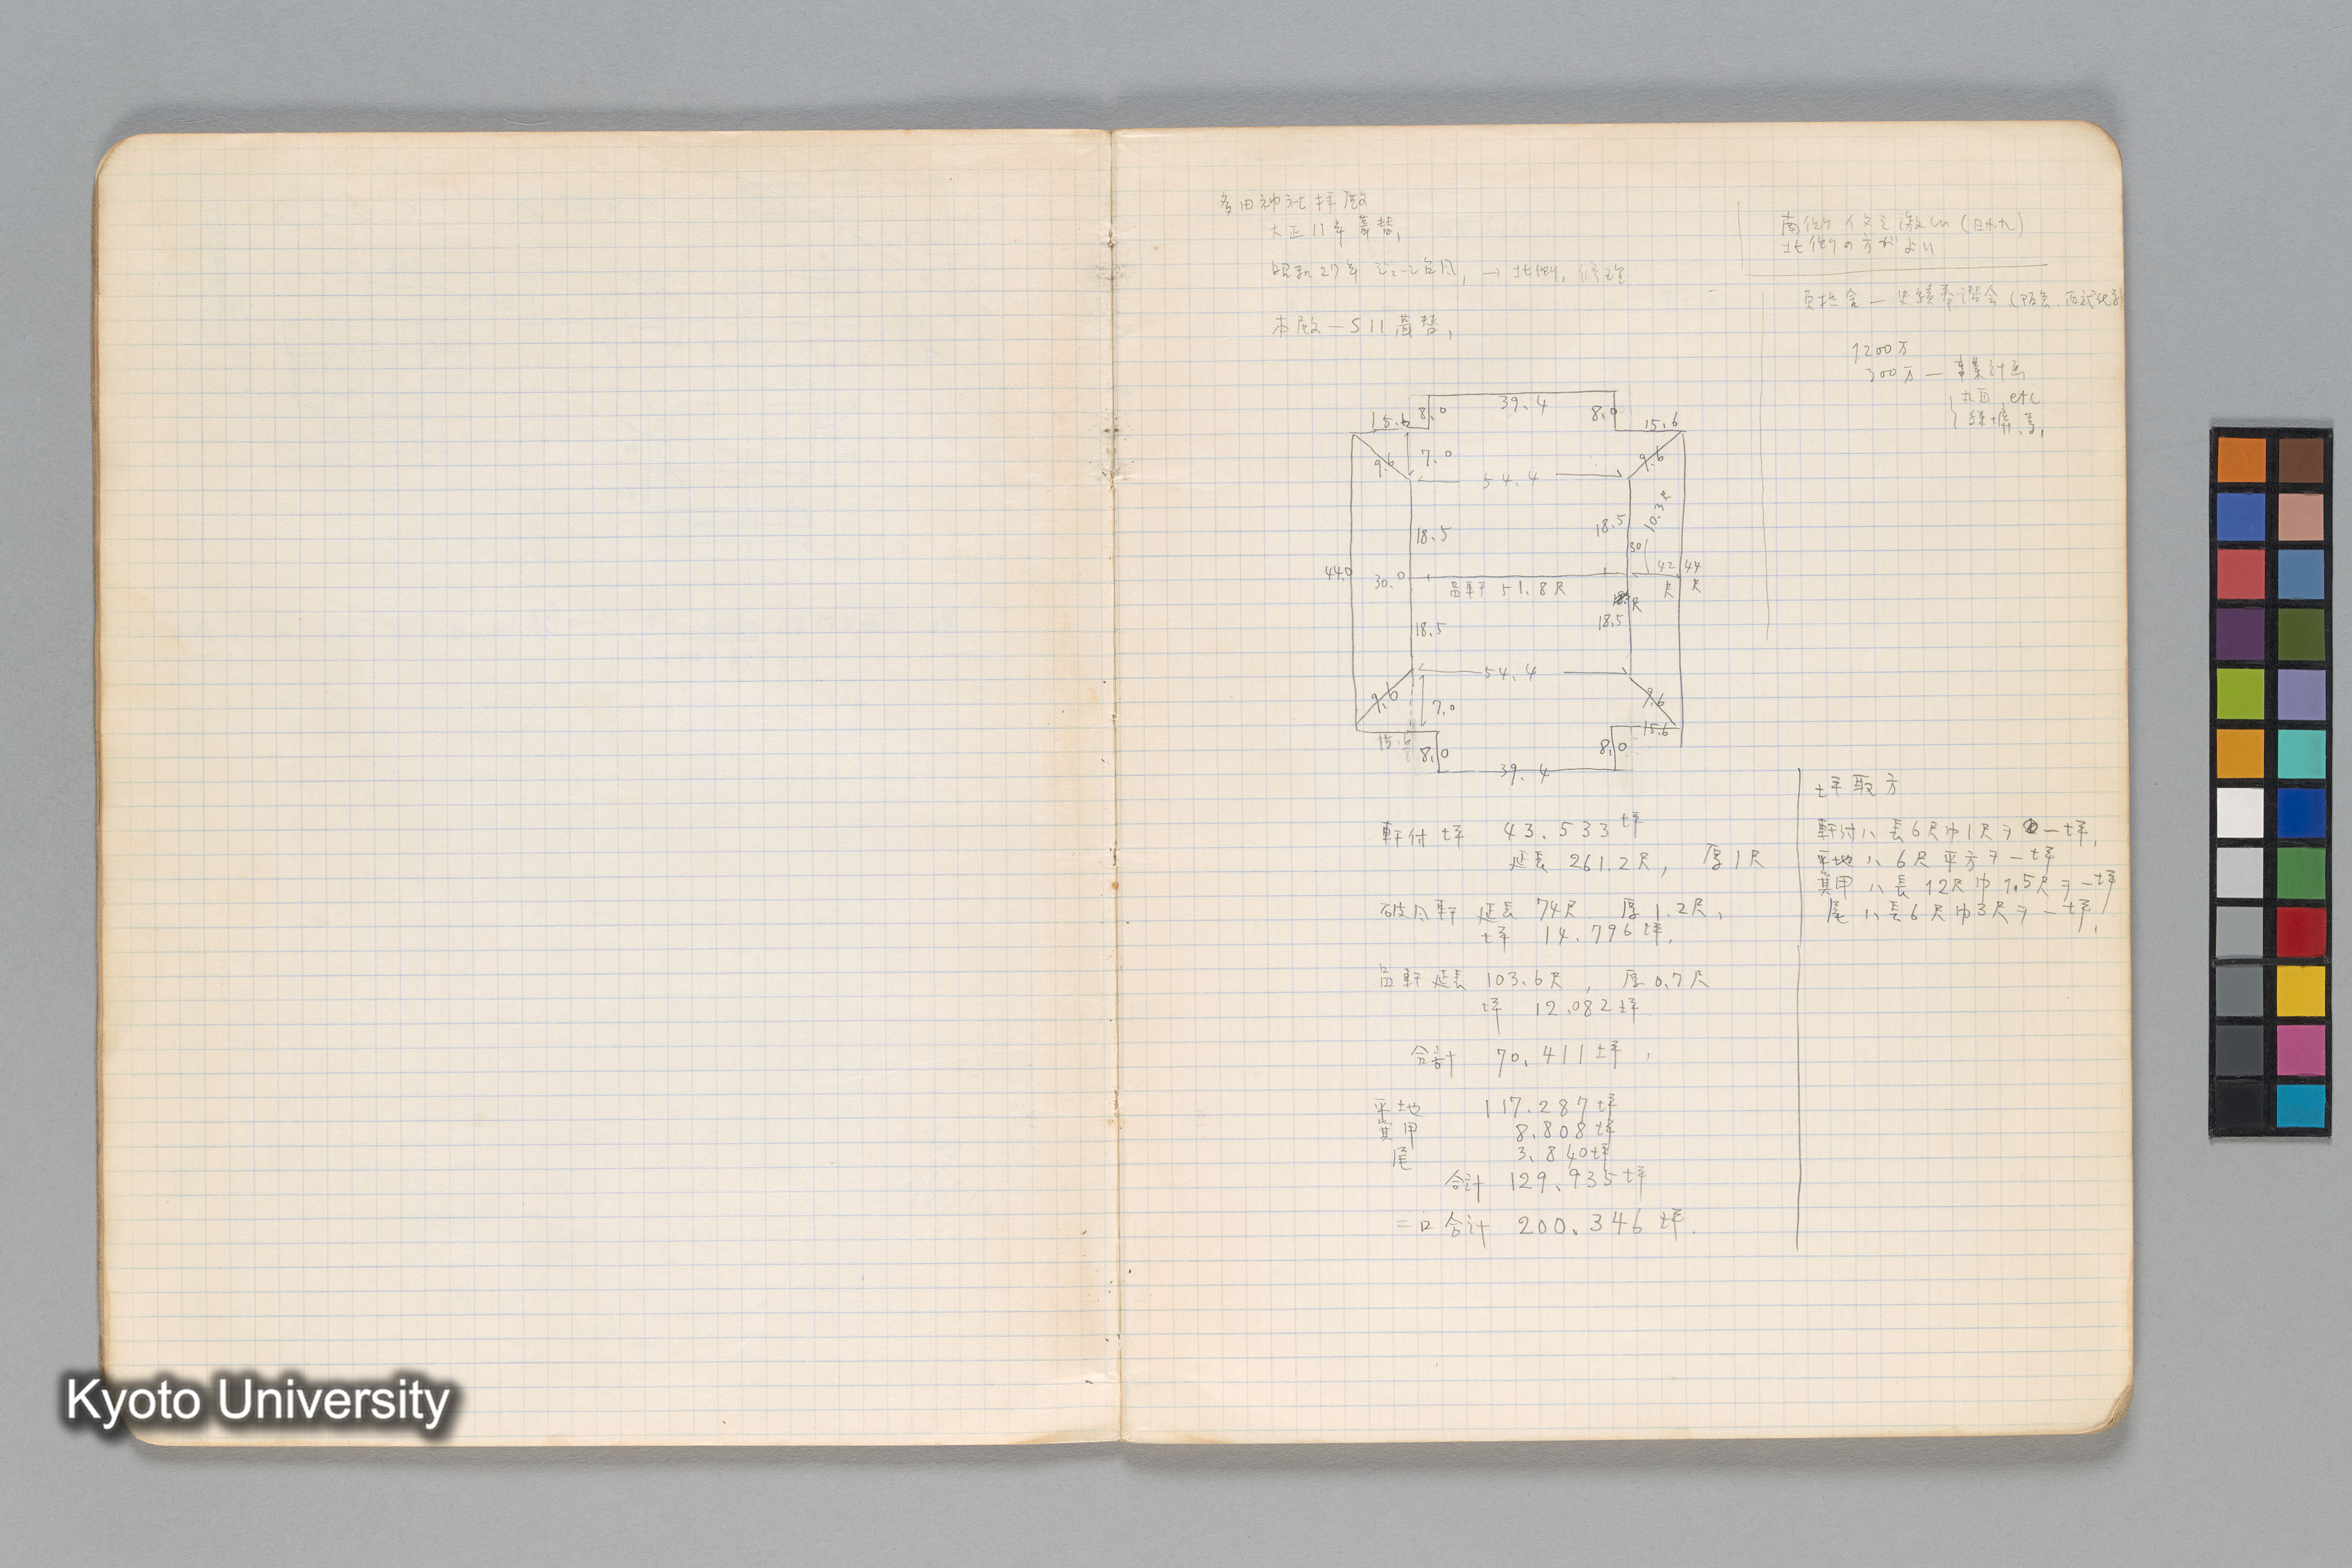 多田神社拝殿
大正11年葺替,
昭和27年 台風, → 北側, 修理
本殿 — S11葺替,
南側 激しい
北側の方がよい
負担金 —
1200万
300万 — 事業計画
etc
39.4
15.6 8.0 8.0 15.6
9.6 7.0 9.6
54.4
18.5 18.5 10.3尺
30
44.0 30.0 42尺 44尺
箇軒 51.8尺
18.5 18.5
54.4
9.6 7.0 9.6
15.6 8.0 8.0 15.6
39.4
軒付坪 43.533坪
延長 261.2尺, 厚1尺
破風軒 延長 74尺 厚1.2尺,
坪 14.796坪,
箇軒延長 103.6尺, 厚0.7尺
坪 12.082坪
合計 70.411坪,
平地 117.287坪
箕甲 8.808坪
尾 3.840坪
合計 129.935坪
二口合計 200.346坪.
坪取方
軒付ハ長6尺巾1尺ヲ一坪,
平地ハ6尺平方ヲ一坪
箕甲ハ長12尺巾1.5尺ヲ一坪
尾ハ長6尺巾3尺ヲ一坪,
Kyoto University